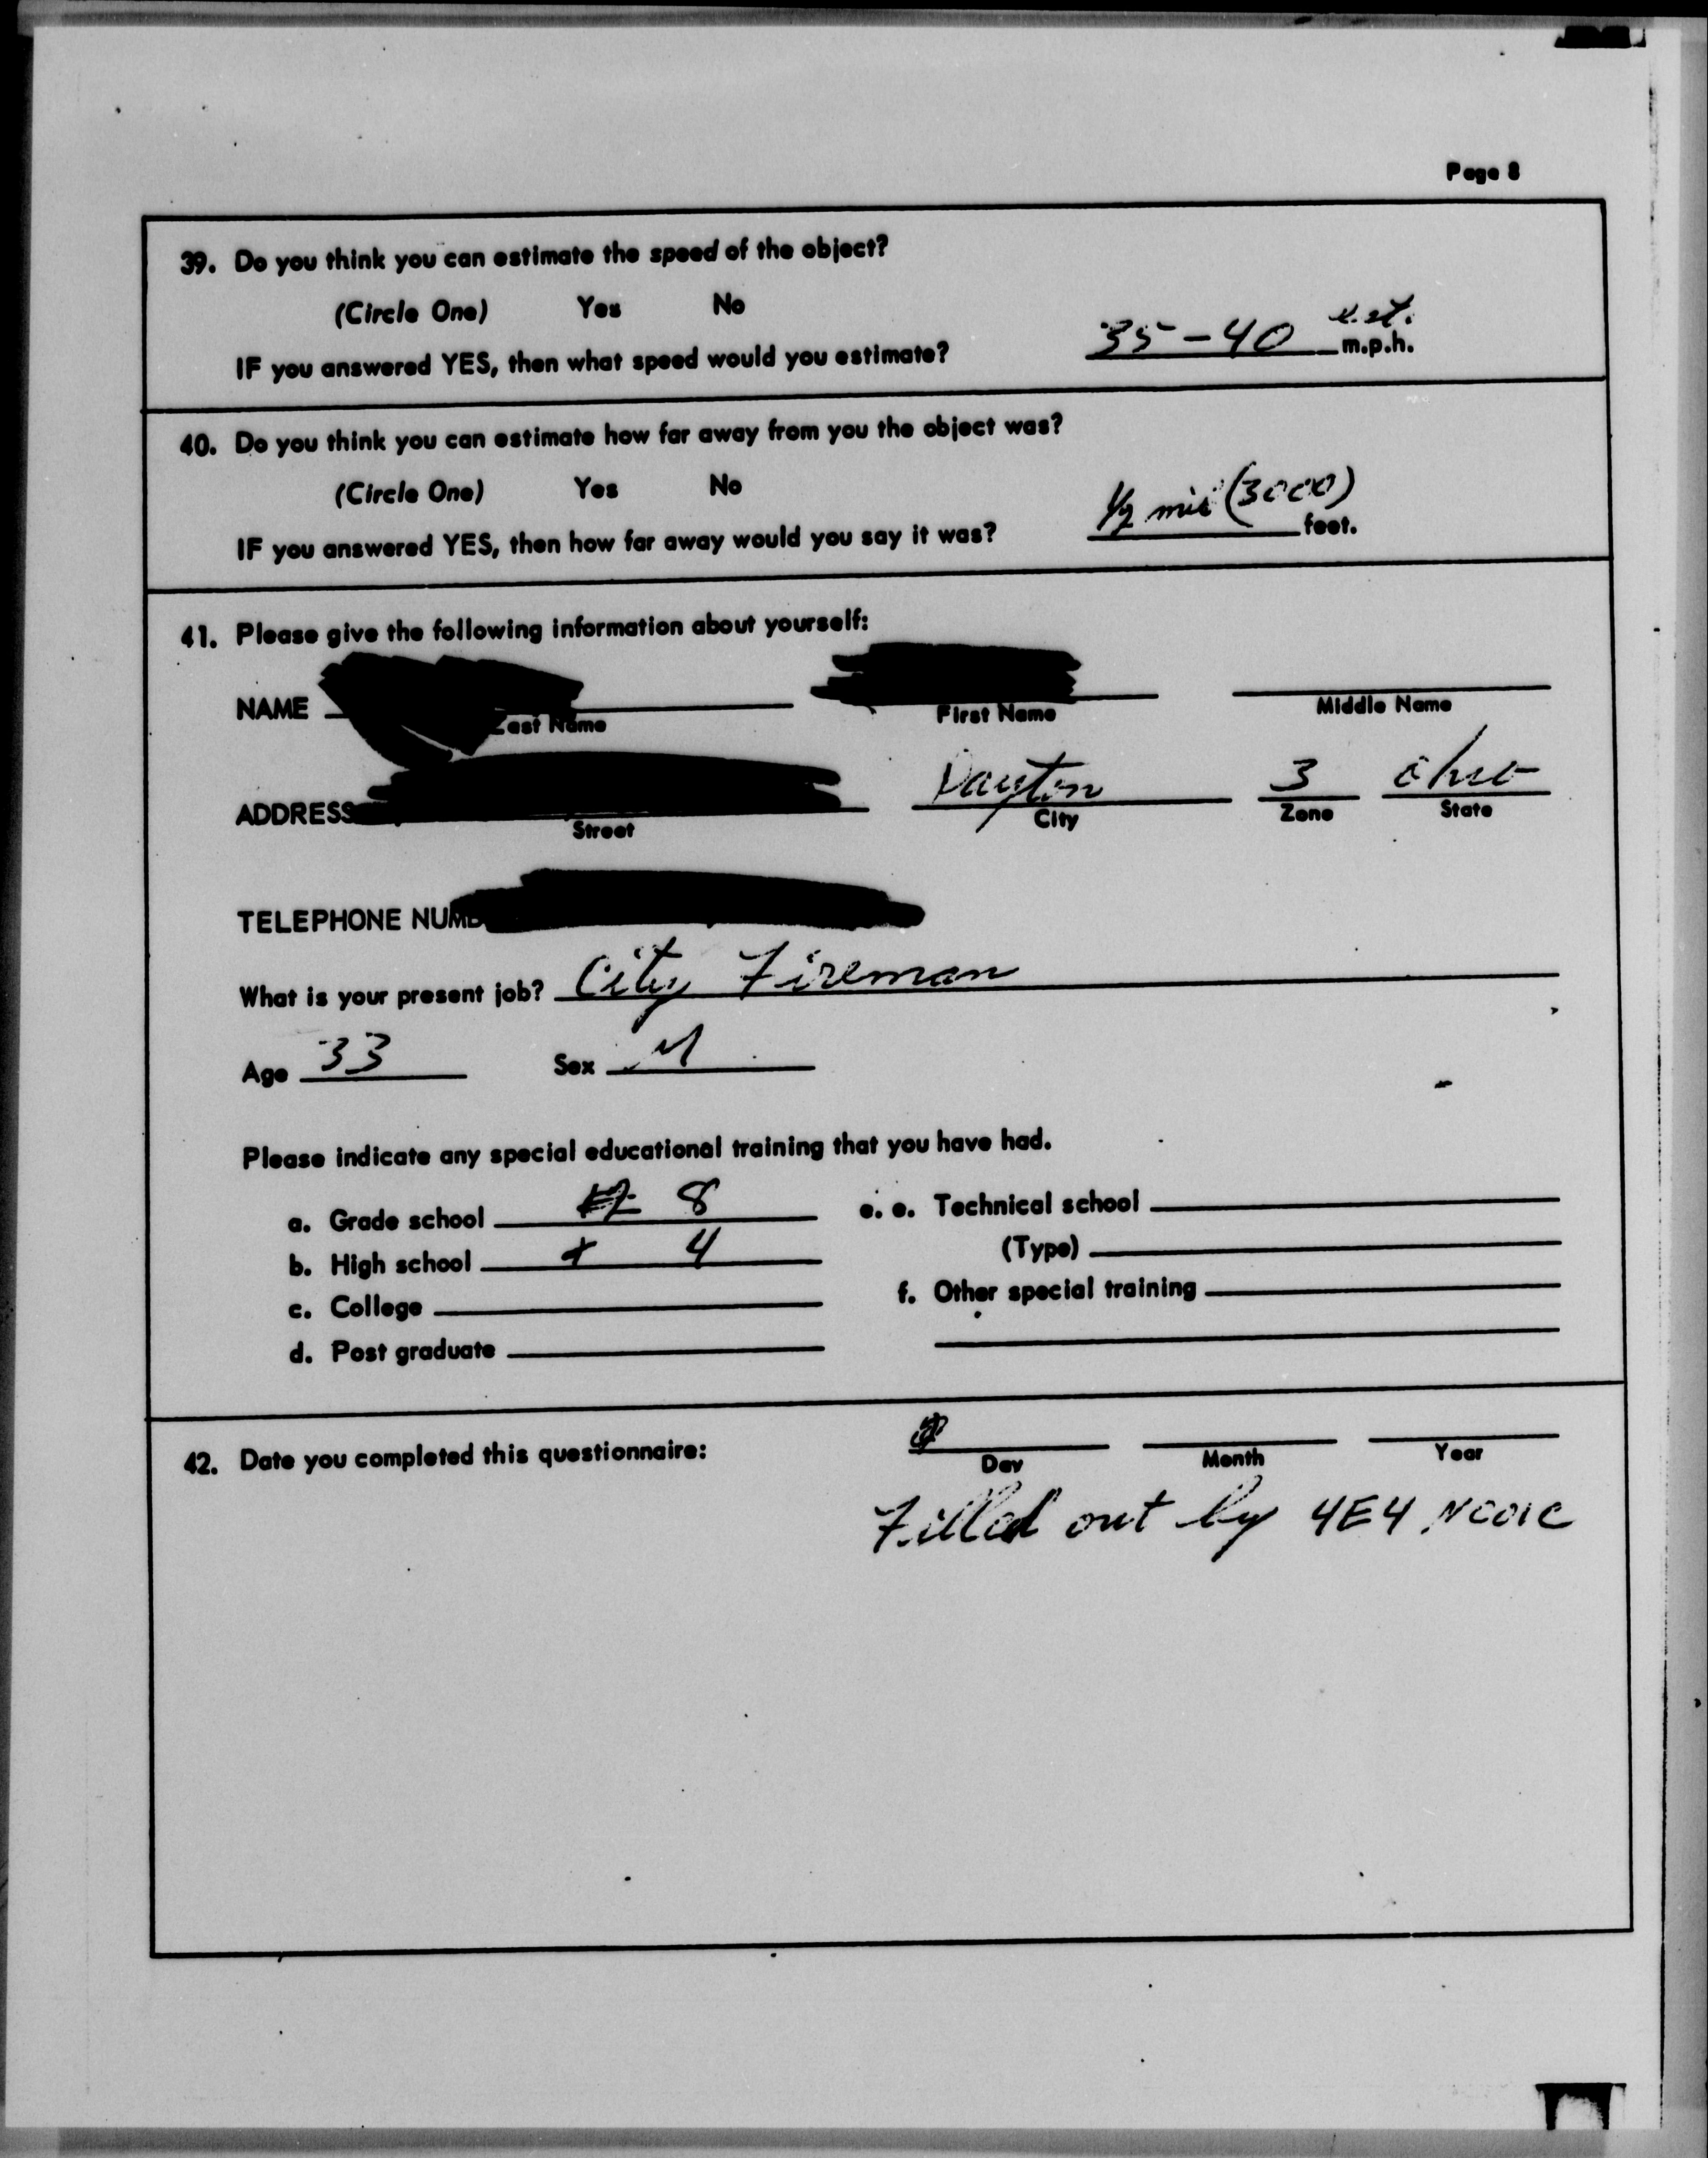 Page 8
39. Do you think you can estimate the speed of the object?
(Circle One) Yes No
IF you answered YES, then what speed would you estimate? 35-40 est. m.p.h.
40. Do you think you can estimate how far away from you the object was?
(Circle One) Yes No
IF you answered YES, then how far away would you say it was? 1/2 mil (3000) feet.
41. Please give the following information about yourself:
NAME
Last Name First Name Middle Name
ADDRESS Dayton 3 Ohio
Street City Zone State
TELEPHONE NUMB
What is your present job? City Fireman
Age 33 Sex M
Please indicate any special educational training that you have had.
a. Grade school 8 e. e. Technical school
b. High school 4 (Type)
c. College f. Other special training
d. Post graduate
42. Date you completed this questionnaire:
Day Month Year
Filled out by 4E4 NCOIC